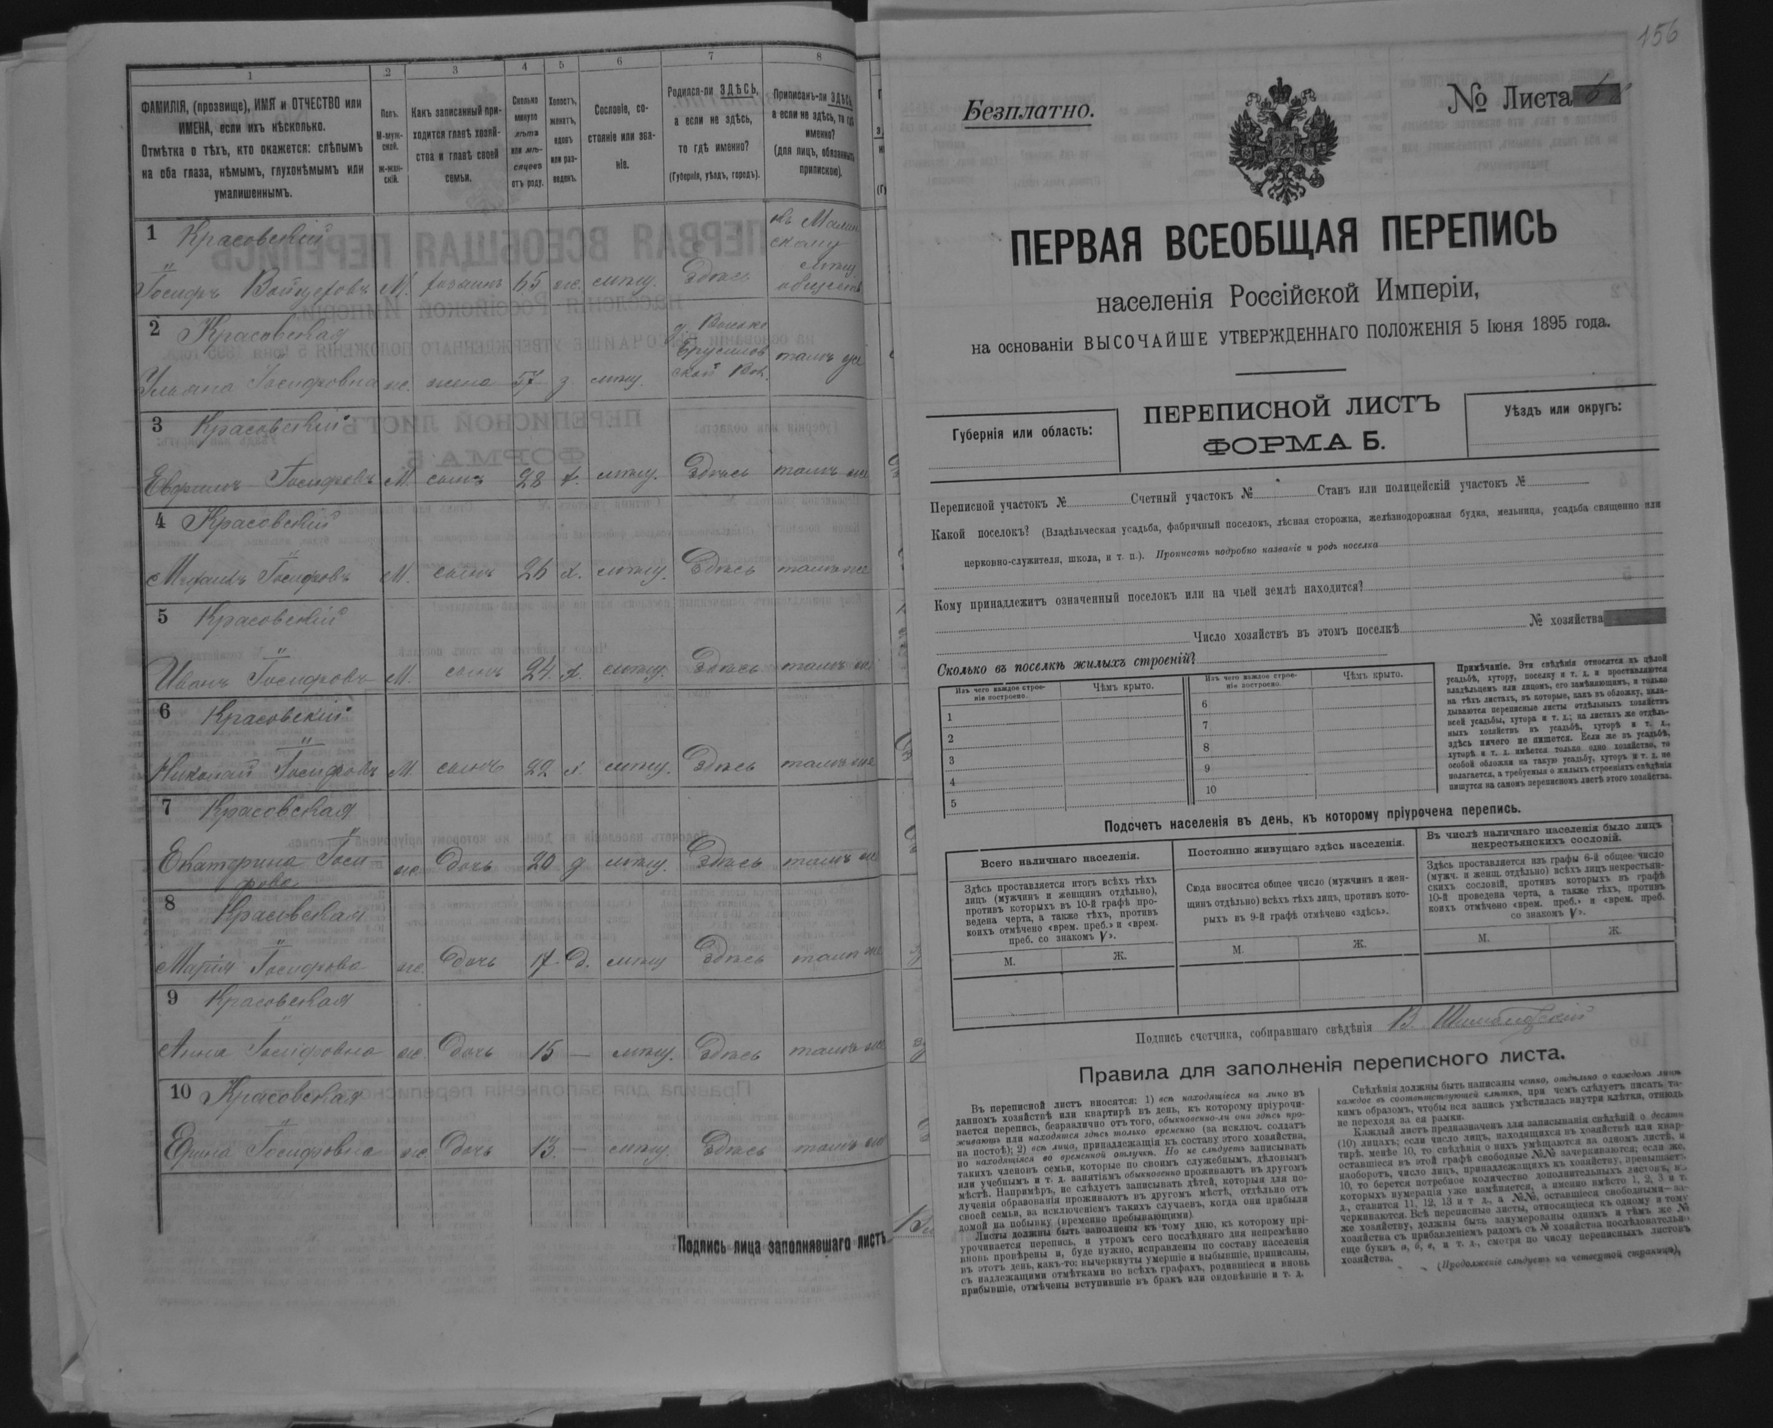 1 2 3 4 5 6 7 8
ФАМИЛІЯ, (прозвище), ИМЯ и ОТЧЕСТВО или
ИМЕНА, если ихъ нѣсколько.
Отмѣтка о тѣхъ, кто окажется: слѣпымъ
на оба глаза, нѣмымъ, глухонѣмымъ или
умалишеннымъ.
Полъ.
М-муж-
ской.
Ж-жен-
скій.
Какъ записанный при-
ходится главѣ хозяй-
ства и главѣ своей
семьи.
Сколько
минуло
лѣтъ
или мѣ-
сяцевъ
отъ роду.
Холостъ,
женатъ,
вдовъ
или раз-
веденъ.
Сословіе, со-
стояніе или зва-
ніе.
Родился-ли ЗДѢСЬ,
а если не здѣсь,
то гдѣ именно?
(Губернія, уѣздъ, городъ).
Приписанъ-ли ЗДѢСЬ,
а если не здѣсь, то гдѣ
именно?
(для лицъ, обязанныхъ
припискою).
1 Красовскій
Іосифъ М. хозяинъ 65 ж. мѣщ. Здѣсь
2 Красовская
Ульяна Іосифовна ж. жена 57 з. мѣщ. тамъ же
3 Красовскій
Іосифовъ М. сынъ 28 х. мѣщ. Здѣсь тамъ же
4 Красовскій
Іосифовъ М. сынъ 26 х. мѣщ. Здѣсь тамъ же
5 Красовскій
Иванъ Іосифовъ М. сынъ 24 х. мѣщ. Здѣсь тамъ же
6 Красовскій
Николай Іосифовъ М. сынъ 22 х. мѣщ. Здѣсь тамъ же
7 Красовская
Екатерина Іоси
фова ж. Дочь 20 д. мѣщ. Здѣсь тамъ же
8 Красовская
Марія Іосифова ж. Дочь 17 д. мѣщ Здѣсь тамъ же
9 Красовская
Анна Іосифовна ж. Дочь 15 — мѣщ. Здѣсь тамъ же
10 Красовская
Іосифовна ж. Дочь 13 — мѣщ. Здѣсь тамъ же
Подпись лица заполнявшаго листъ
156
Безплатно.
№ Листа
ПЕРВАЯ ВСЕОБЩАЯ ПЕРЕПИСЬ
населенія Россійской Имперіи,
на основаніи ВЫСОЧАЙШЕ УТВЕРЖДЕННАГО ПОЛОЖЕНІЯ 5 Іюня 1895 года.
Губернія или область:
ПЕРЕПИСНОЙ ЛИСТЪ
ФОРМА Б.
Уѣздъ или округъ:
Переписной участокъ № Счетный участокъ № Станъ или полицейскій участокъ №
Какой поселокъ? (Владѣльческая усадьба, фабричный поселокъ, лѣсная сторожка, желѣзнодорожная будка, мельница, усадьба священно или
церковно-служителя, школа, и т. п.). Прописать подробно названіе и родъ поселка
Кому принадлежитъ означенный поселокъ или на чьей землѣ находится?
Число хозяйствъ въ этомъ поселкѣ № хозяйства
Сколько въ поселкѣ жилыхъ строеній?
Изъ чего каждое строе-
ніе построено.
Чѣмъ крыто.
Изъ чего каждое строе-
ніе построено.
Чѣмъ крыто.
1 6
2 7
3 8
4 9
5 10
Примѣчаніе. Эти свѣдѣнія относятся къ цѣлой
усадьбѣ, хутору, поселку и т. д. и проставляются
владѣльцемъ или лицомъ, его замѣняющимъ, и только
на тѣхъ листахъ, въ которые, какъ въ обложку, вкла-
дываются переписные листы отдѣльныхъ хозяйствъ
всей усадьбы, хутора и т. д.; на листахъ же отдѣль-
ныхъ хозяйствъ въ усадьбѣ, хуторѣ и т. д.,
здѣсь ничего не пишется. Если же въ усадьбѣ,
хуторѣ и т. д. имѣется только одно хозяйство, то
особой обложки на такую усадьбу, хуторъ и т. д. не
полагается, а требуемыя о жилыхъ строеніяхъ свѣдѣнія
пишутся на самомъ переписномъ листѣ этого хозяйства.
Подсчетъ населенія въ день, къ которому пріурочена перепись.
Всего наличнаго населенія.
Здѣсь проставляется итогъ всѣхъ тѣхъ
лицъ (мужчинъ и женщинъ отдѣльно),
противъ которыхъ въ 10-й графѣ про-
ведена черта, а также тѣхъ, противъ
коихъ отмѣчено «врем. преб.» и «врем.
преб. со знакомъ V».
М. Ж.
Постоянно живущаго здѣсь населенія.
Сюда вносится общее число (мужчинъ и жен-
щинъ отдѣльно) всѣхъ тѣхъ лицъ, противъ кото-
рыхъ въ 9-й графѣ отмѣчено «здѣсь».
М. Ж.
Въ числѣ наличнаго населенія было лицъ
некрестьянскихъ сословій.
Здѣсь проставляется изъ графы 6-й общее число
(мужч. и женщ. отдѣльно) всѣхъ лицъ некрестьян-
скихъ сословій, противъ которыхъ въ графѣ
10-й проведена черта, а также тѣхъ, противъ
коихъ отмѣчено «врем. преб.» и «врем. преб.
со знакомъ V».
М. Ж.
Подпись счетчика, собиравшаго свѣдѣнія
Правила для заполненія переписного листа.
Въ переписной листъ вносятся: 1) всѣ находящіеся на лицо въ
данномъ хозяйствѣ или квартирѣ въ день, къ которому пріурочи-
вается перепись, безразлично отъ того, обыкновенно-ли они здѣсь про-
живаютъ или находятся здѣсь только временно (за исключ. солдатъ
на постоѣ); 2) всѣ лица, принадлежащія къ составу этого хозяйства,
но находящіяся во временной отлучкѣ. Но не слѣдуетъ записывать
такихъ членовъ семьи, которые по своимъ служебнымъ, дѣловымъ
или учебнымъ и т. д. занятіямъ обыкновенно проживаютъ въ другомъ
мѣстѣ. Напримѣръ, не слѣдуетъ записывать дѣтей, которыя для по-
лученія образованія проживаютъ въ другомъ мѣстѣ, отдѣльно отъ
своей семьи, за исключеніемъ такихъ случаевъ, когда они прибыли
домой на побывку (временно пребывающими).
Листы должны быть заполнены къ тому дню, къ которому прі-
урочивается перепись, и утромъ сего послѣдняго дня непремѣнно
вновь провѣрены и, буде нужно, исправлены по составу населенія
въ этотъ день, какъ-то: вычеркнуты умершіе и выбывшіе, приписаны,
съ надлежащими отмѣтками во всѣхъ графахъ, родившіеся и вновь
прибывшіе, отмѣчены вступившіе въ бракъ или овдовѣвшіе и т. д.
Свѣдѣнія должны быть написаны четко, отдѣльно о каждомъ лицѣ
каждое въ соотвѣтствующей клѣткѣ, при чемъ слѣдуетъ писать та-
кимъ образомъ, чтобы вся запись умѣстилась внутри клѣтки, отнюдь
не переходя за ея рамки.
Каждый листъ предназначенъ для записыванія свѣдѣній о десяти
(10) лицахъ; если число лицъ, находящихся въ хозяйствѣ или квар-
тирѣ, менѣе 10, то свѣдѣнія о нихъ умѣщаются на одномъ листѣ, и
оставшіеся въ этой графѣ свободные №№ зачеркиваются; если же,
наоборотъ, число лицъ, принадлежащихъ къ хозяйству, превышаетъ
10, то берется потребное количество дополнительныхъ листовъ, въ
которыхъ нумерація уже измѣняется, а именно вмѣсто 1, 2, 3 и т.
д., ставится 11, 12, 13 и т. д., а №№, оставшіеся свободными—за-
черкиваются. Всѣ переписные листы, относящіеся къ одному и тому
же хозяйству, должны быть занумерованы однимъ и тѣмъ же №
хозяйства съ прибавленіемъ рядомъ съ № хозяйства послѣдовательно
еще буквъ а, б, в, и т. д., смотря по числу переписныхъ листовъ
хозяйства.
(Продолженіе слѣдуетъ на четвертой страницѣ),